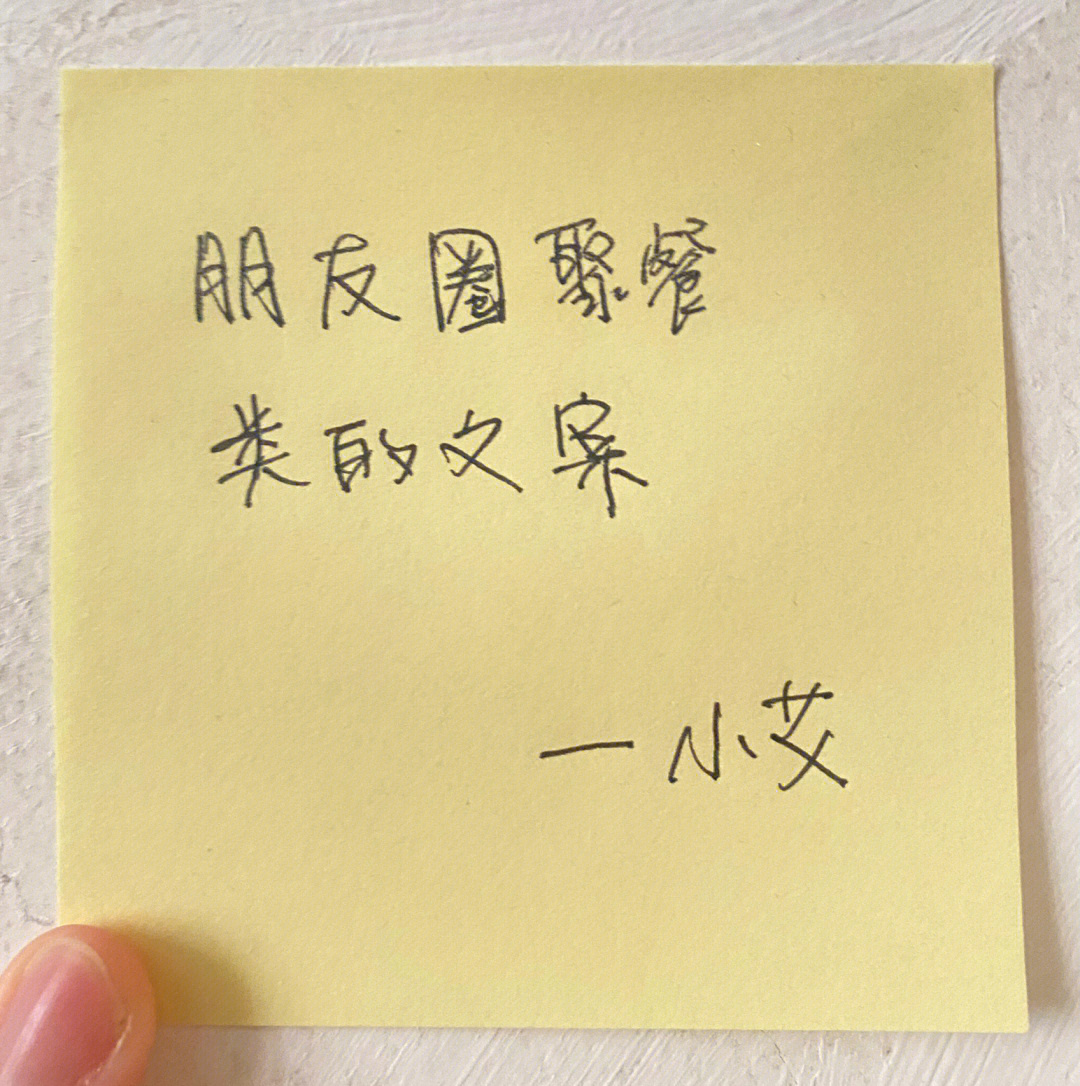 朋友圈聚餐
类的文案
一小艾